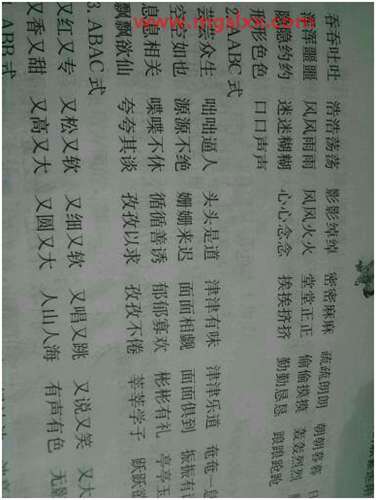 www.mgslxx.com
吞吞吐吐 浩浩荡荡 影影绰绰 密密麻麻 疏疏朗朗 朝朝暮暮
风风雨雨 风风火火 堂堂正正 偷偷摸摸 轰轰烈烈
隐隐约约 迷迷糊糊 心心念念 挨挨挤挤 勤勤恳恳 踉踉跄跄
形形色色 口口声声
2. AABC 式
芸芸众生 咄咄逼人 头头是道 津津有味 津津乐道 奄奄一
空空如也 源源不绝 姗姗来迟 面面相觑 面面俱到 振振有
息息相关 喋喋不休 循循善诱 郁郁寡欢 彬彬有礼 亭亭玉
飘飘欲仙 夸夸其谈 孜孜以求 孜孜不倦 莘莘学子 跃跃
3. ABAC 式
又红又专 又松又软 又细又软 又唱又跳 又说又笑 又大
又香又甜 又高又大 又圆又大 人山人海 有声有色 无
ABB 式